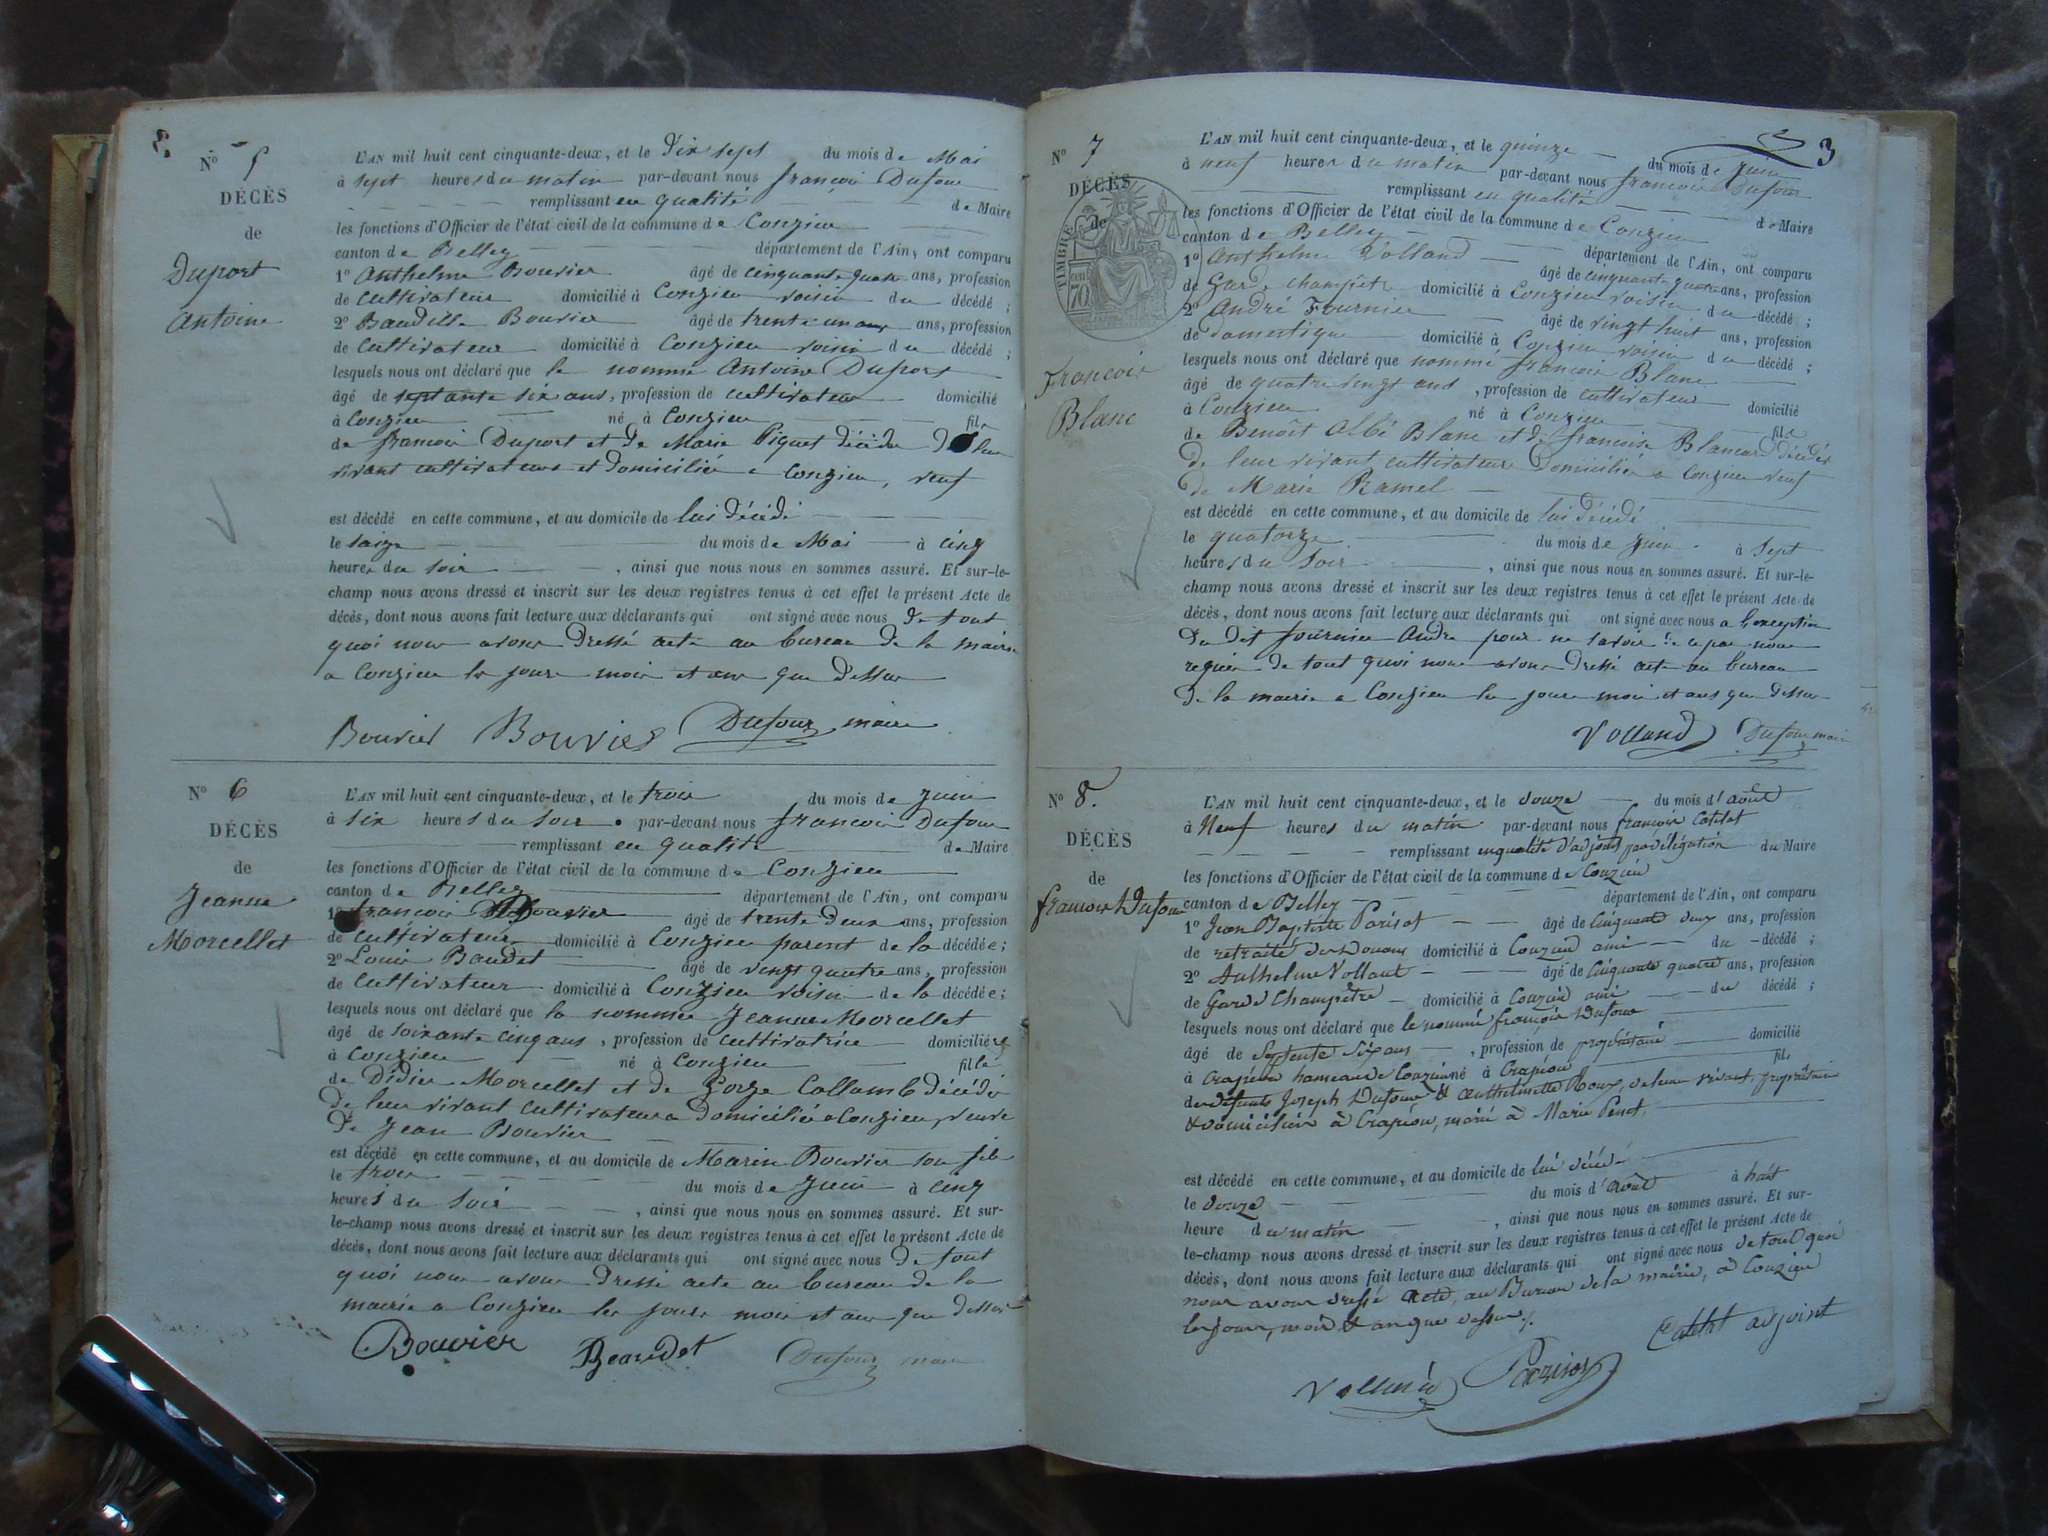 2
N° 5
DÉCÈS
de
Duport
Antoine
L'AN mil huit cent cinquante-deux, et le dix sept du mois de Mai
à sept heures du matin par-devant nous françois Dufour
remplissant en qualité de Maire
les fonctions d'Officier de l'état civil de la commune de Conzieu
canton de Belley département de l'Ain, ont comparu
1° Anthelme Bouvier âgé de cinquante quatre ans, profession
de cultivateur domicilié à Conzieu voisin du décédé ;
2° Baudille Bouvier âgé de trente un ans, profession
de cultivateur domicilié à Conzieu voisin du décédé ;
lesquels nous ont déclaré que le nommé Antoine Duport
âgé de septante six ans, profession de cultivateur domicilié
à Conzieu né à Conzieu fils
de françois Duport et de Marie Piquet décédés de leur
vivant cultivateurs et domiciliés a Conzieu, veuf
est décédé en cette commune, et au domicile de lui décédé
le saize du mois de Mai à cinq
heures du soir , ainsi que nous nous en sommes assuré. Et sur-le-
champ nous avons dressé et inscrit sur les deux registres tenus à cet effet le présent Acte de
décès, dont nous avons fait lecture aux déclarants qui ont signé avec nous de tout
quoi nous avons dressé acte au bureau de la mairie
a Conzieu les jours mois et an que dessus
Bouvier Bouvier Dufour maire
N° 6
DÉCÈS
de
Jeanne
Morcellet
L'AN mil huit cent cinquante-deux, et le trois du mois de Juin
à six heures du soir par-devant nous françois Dufour
remplissant en qualité de Maire
les fonctions d'Officier de l'état civil de la commune de Conzieu
canton de Belley département de l'Ain, ont comparu
1° françois Bouvier âgé de trente deux ans, profession
de cultivateur domicilié à Conzieu parent de la décédée ;
2° Louis Baudet âgé de vingt quatre ans, profession
de cultivateur domicilié à Conzieu voisin de la décédée ;
lesquels nous ont déclaré que la nommée Jeanne Morcellet
âgé de soixante cinq ans, profession de cultivatrice domiciliée
à Conzieu né à Conzieu fille
de Didier Morcellet et de Collomb décédés
de leur vivant cultivateurs domiciliés a Conzieu, veuve
de Jean Bouvier
est décédé en cette commune, et au domicile de Marin Bouvier son fils
le trois du mois de Juin à cinq
heures du soir , ainsi que nous nous en sommes assuré. Et sur-
le-champ nous avons dressé et inscrit sur les deux registres tenus à cet effet le présent Acte de
décès, dont nous avons fait lecture aux déclarants qui ont signé avec nous de tout
quoi nous avons dressé acte au bureau de la
mairie a Conzieu les jours mois et an que dessus
Bouvier Beaudet Dufour maire
3
N° 7
DÉCÈS
de
TIMBRE
70
françois
Blanc
L'AN mil huit cent cinquante-deux, et le quinze du mois de Juin
à neuf heures du matin par-devant nous françois Dufour
remplissant en qualité de Maire
les fonctions d'Officier de l'état civil de la commune de Conzieu
canton de Belley département de l'Ain, ont comparu
1° Anthelme Volland âgé de cinquante quatre ans, profession
de Garde champêtre domicilié à Conzieu voisin du décédé ;
2° André Fournier âgé de vingt huit ans, profession
de domestique domicilié à Conzieu voisin du décédé ;
lesquels nous ont déclaré que nommé françois Blanc
âgé de quatre vingt ans , profession de cultivateur domicilié
à Conzieu né à Conzieu fils
de Benoît Albé Blanc et de françoise Blancard décédés
de leur vivant cultivateurs domiciliés a Conzieu veuf
de Marie Ramel
est décédé en cette commune, et au domicile de lui décédé
le quatorze du mois de Juin à sept
heures du soir , ainsi que nous nous en sommes assuré. Et sur-le-
champ nous avons dressé et inscrit sur les deux registres tenus à cet effet le présent Acte de
décès, dont nous avons fait lecture aux déclarants qui ont signé avec nous a l'exception
du dit fournier André pour ne savoir de ce par nous
requis de tout quoi nous avons dressé acte au bureau
de la mairie a Conzieu les jours mois et ans que dessus
Volland Dufour maire
N° 8.
DÉCÈS
de
francois Dufour
L'AN mil huit cent cinquante-deux, et le douze du mois d'août
à Neuf heures du matin par-devant nous françois Catelat
remplissant en qualité d'adjoint par délégation du Maire
les fonctions d'Officier de l'état civil de la commune de Conzieu
canton de Belley département de l'Ain, ont comparu
1° Jean Baptiste Parisot âgé de cinquante deux ans, profession
de retraité des Douanes domicilié à Conzieu ami du décédé ;
2° Anthelme Vollant âgé de cinquante quatre ans, profession
de Garde Champêtre domicilié à Conzieu ami du décédé ;
lesquels nous ont déclaré que le nommé françois Dufour
âgé de Septente six ans , profession de propriétaire domicilié
à Crapéou hameau de Conzieu né à Crapéou fils
des défunts Joseph Dufour & Anthelmette Roux, de leur vivant, propriétaires
& domiciliés à Crapéou, marié à Marie Penet,
est décédé en cette commune, et au domicile de lui décédé
le douze du mois d'août à huit
heure du matin , ainsi que nous nous en sommes assuré. Et sur-
le-champ nous avons dressé et inscrit sur les deux registres tenus à cet effet le présent Acte de
décès, dont nous avons fait lecture aux déclarants qui ont signé avec nous de tout quoi
nous avons dressé Acte, au Bureau de la mairie, à Conzieu
les jour, mois & an que dessus
Catelat adjoint
Volland Parisot